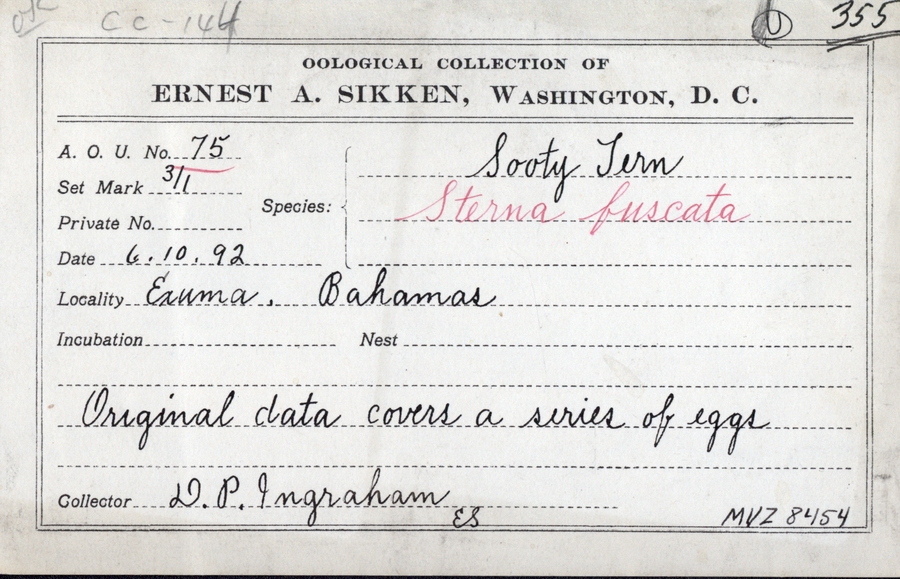 ok CC-144 355
OOLOGICAL COLLECTION OF
ERNEST A. SIKKEN, WASHINGTON, D. C.
A. O. U. No. 75
Set Mark 3/1
Private No.
Date 6.10.92
Species: Sooty Tern
Sterna fuscata
Locality Exuma. Bahamas
Incubation Nest
Original data covers a series of eggs
Collector D. P. Ingraham
ES
MVZ 8454